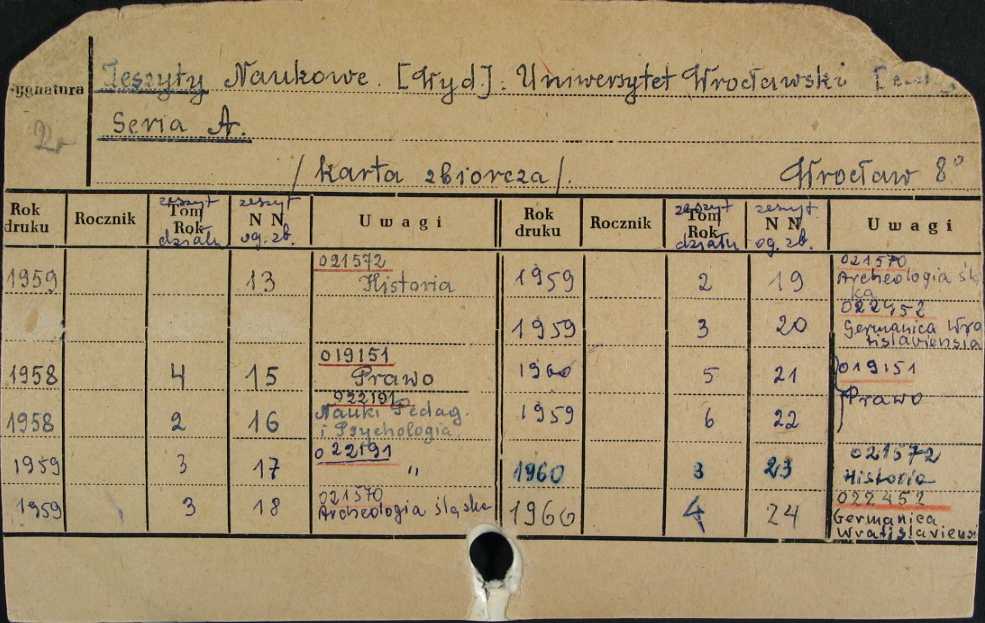 Zeszyty Naukowe. [Wyd]: Uniwersytet Wrocławski
Sygnatura
Seria A.
/karta zbiorcza/. Wrocław 8°
Rok druku Rocznik zeszyt Tom Rok działu zeszyt N N og. zb. Uwagi Rok druku Rocznik zeszyt Tom Rok działu zeszyt N N og. zb. Uwagi
1959 13 021572 Historia 1959 2 19 021570 Archeologia
1959 3 20 022452 Germanica Wratislaviensia
1958 4 15 019151 Prawo 1960 5 21 019151 Prawo
1958 2 16 022191 Nauki Pedag. i Psychologia 1959 6 22
1959 3 17 022191 " 1960 3 23 021572 Historia
1959 3 18 021570 Archeologia śląska 1960 4 24 022452 Germanica Wratislaviensi